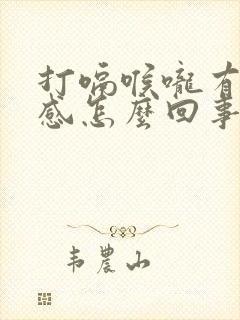 打嗝喉嚨有
感怎麼回事
韦農山